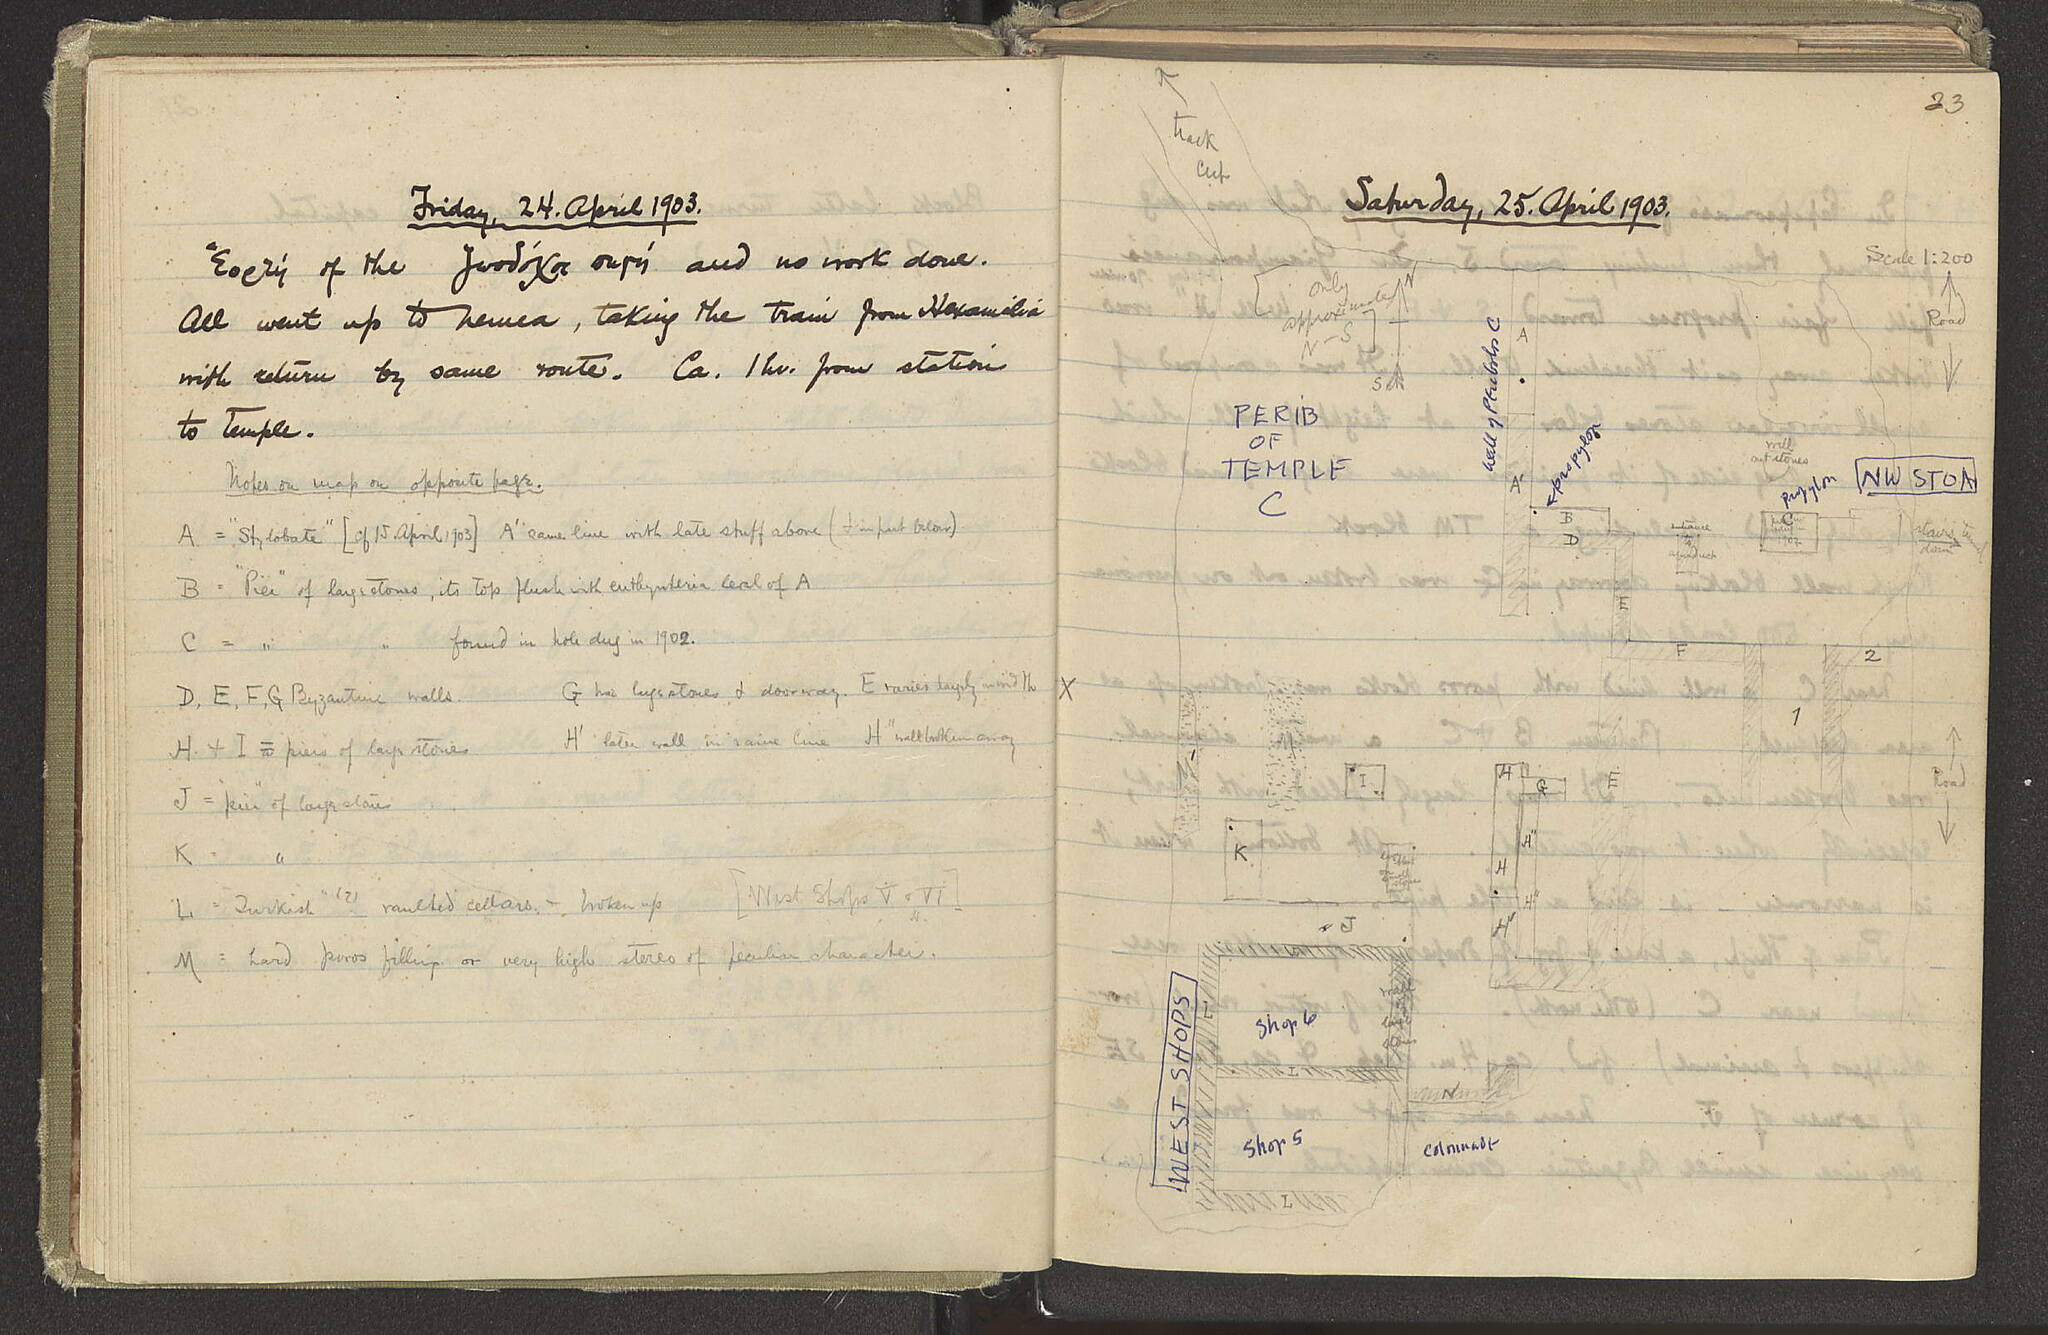 Friday, 24. April 1903.
Ἑορτή of the Ζωοδόχος πηγή and no work done.
All went up to Nemea, taking the train from Hexamilia
with return by same route. Ca. 1 hr. from station
to temple.
Notes on map on opposite page.
A = "Stylobate" [cf 15 April 1903] A' same line with late stuff above (+ in part below)
B = "Pier" of large stones, its top flush with euthynteria level of A
C = " " found in hole dug in 1902.
D, E, F, G Byzantine walls. G has large stones & doorway. E varies largely in width
H + I = piers of large stones H' later wall in same line H" wall broken away
J = "pier" of large stones
K = "
L = Turkish (?) vaulted cellars. – broken up [West Shops V & VI]
M = hard poros filling or very high stereo of peculiar character.
23
track
cut
Saturday, 25. April 1903.
Scale 1:200
[only
approximate
N–S]
N
S
Road
A
wall of Peribolos C
PERIB
OF
TEMPLE
C
propylon
well
cut stones
NW STOA
propylon
A'
B
C
1902
D
entrance
to
aqueduct
stairs
down
E
F
2
1
X
I
H
G
E
Road
K
H"
H
H"
H"
J
WEST SHOPS
L
Shop 6
L
N
Shop 5
Colonnade
L